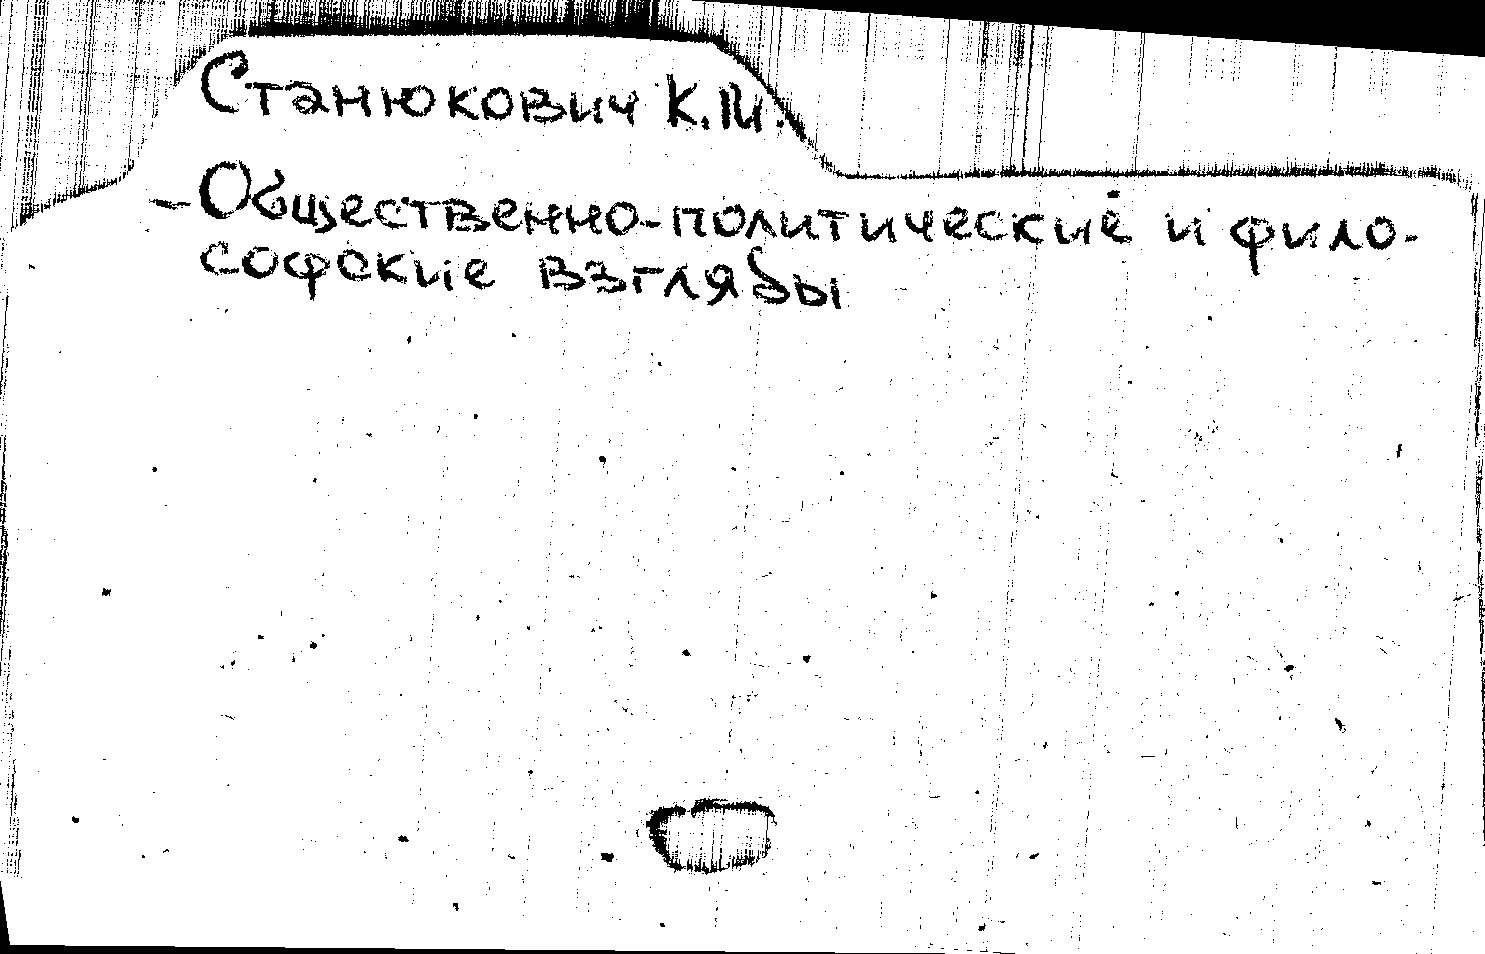 Станюкович К.М.
- Общественно-политические и фило-
софские взгляды